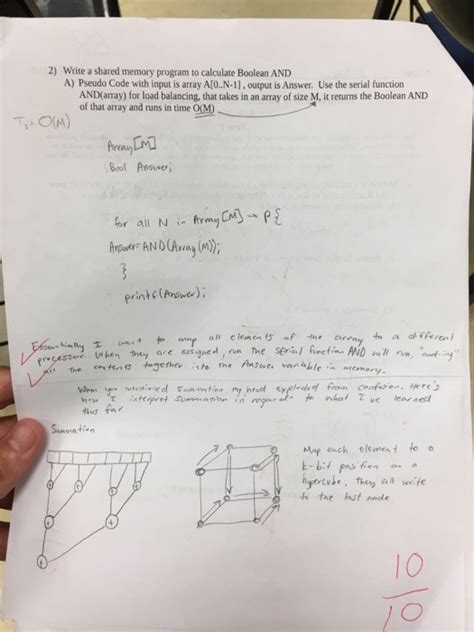 2) Write a shared memory program to calculate Boolean AND
A) Pseudo Code with input is array A[0..N-1] , output is Answer. Use the serial function
AND(array) for load balancing, that takes in an array of size M, it returns the Boolean AND
of that array and runs in time O(M)
Ts= O(M)
Array[M]
Bool Answer;
for all N in Array[M] → P{
Answer=AND(Array(M));
}
printf(Answer);
Essentially I want to map all elements of the array to a different
processor. When they are assigned, run the serial function AND will run, "anding"
all the contents together into the Answer variable in memory.
When you mentioned summation my head exploded from confusion. Here's
how I interpret summation in regards to what I've learned
thus far
Summation
Map each element to a
k-bit position on a
hypercube. They all write
to the last node
+
+
+
+
+
10
10